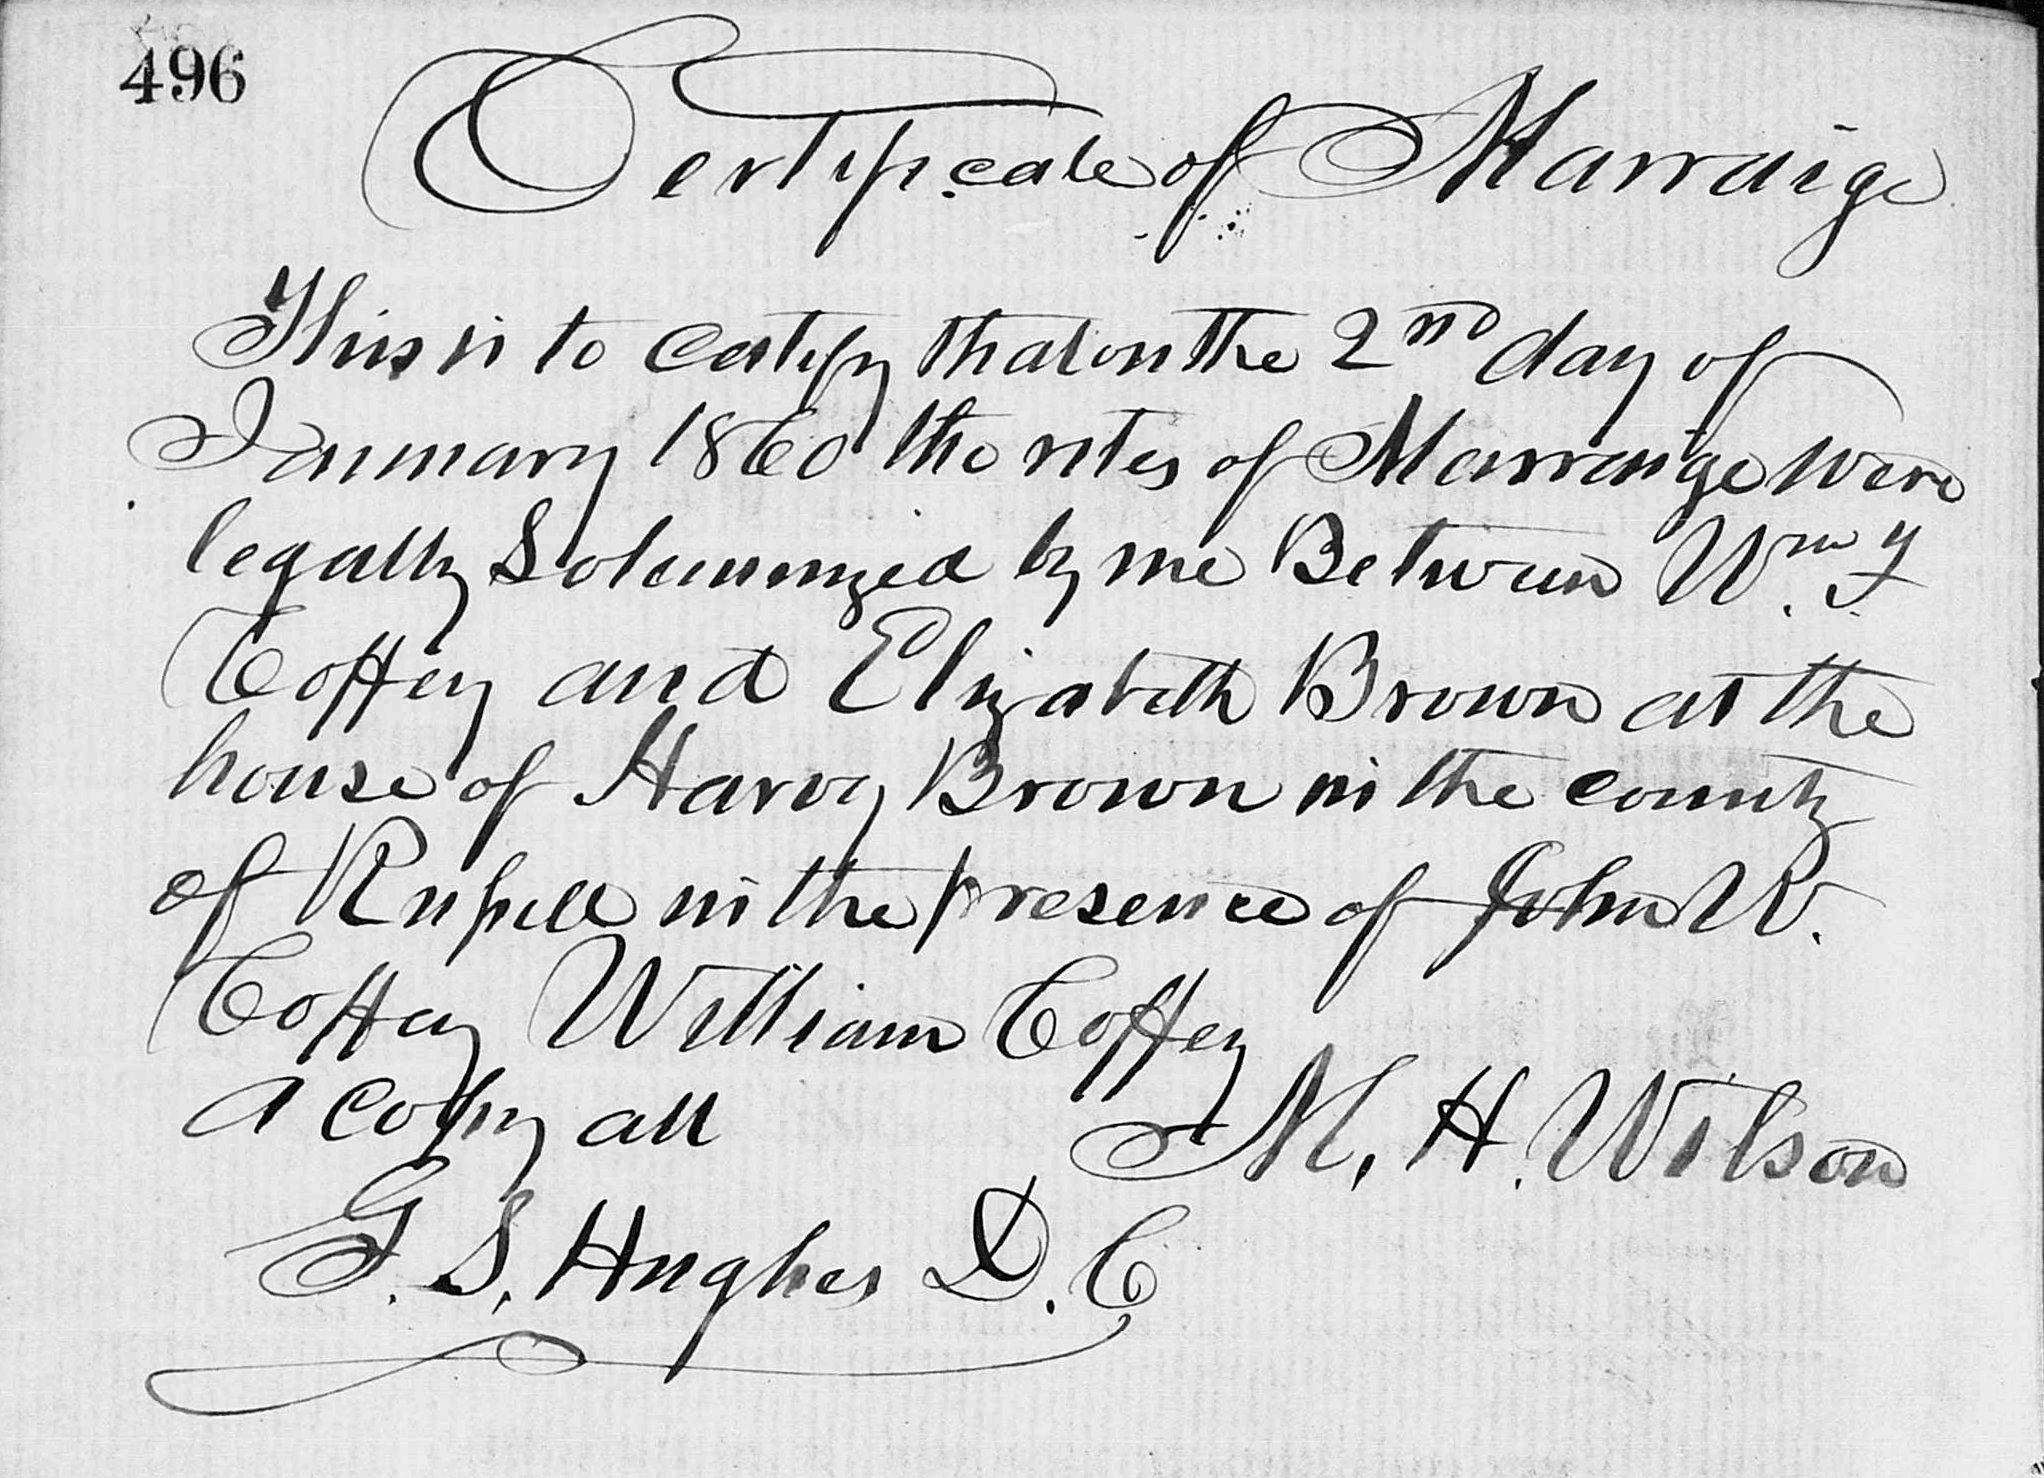 496
Certificate of Marraige
This is to Certify that on the 2nd day of
January 1860 the rites of Marraige were
legally Solemnized by me Between Wm. F
Coffey and Elizabeth Brown at the
house of Harvy Brown in the county
of Russell in the presence of John W.
Coffey William Coffey
A copy att M. H. Wilson
G. S. Hughes D. C